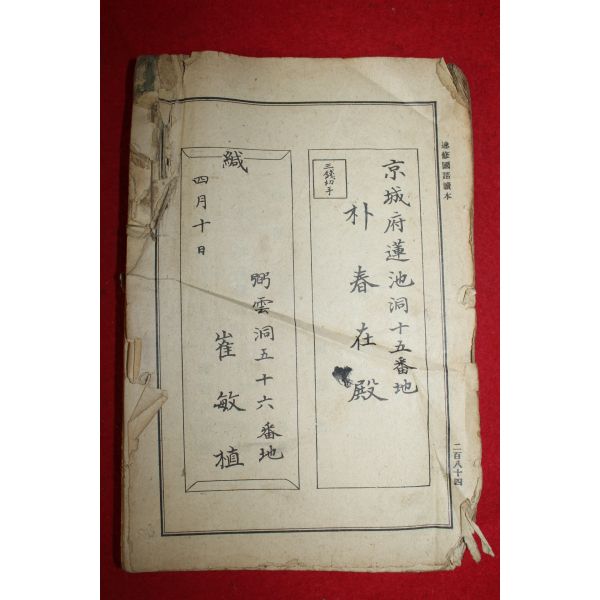 速修國語讀本
京城府蓮池洞十五番地
朴春在殿
三錢切手
緘
四月十日
弼雲洞五十六番地
崔敏植
二百八十四